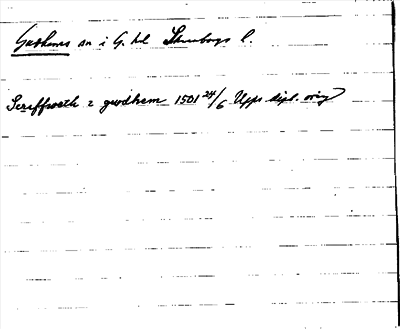 Gudhems sn i G. hd Skaraborgs l.
Seraffweth z gwdhem 1501 24/6 Upps dipl. orig